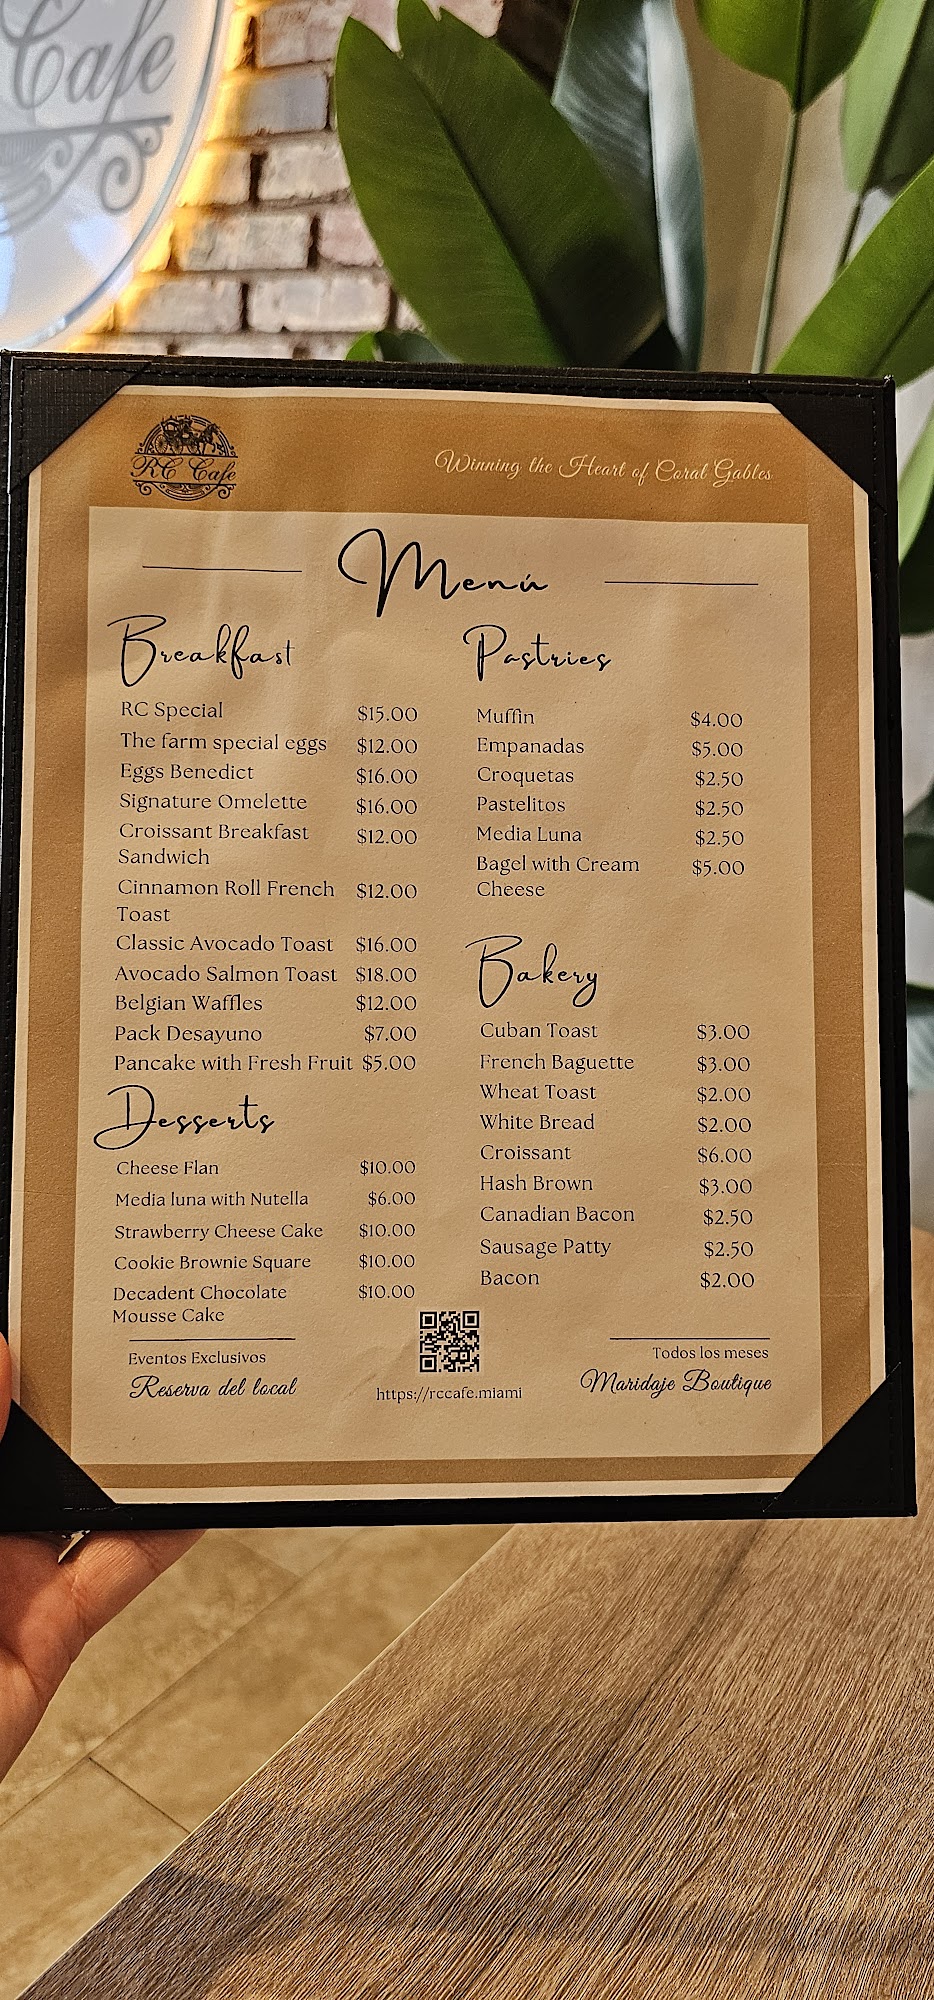 Cafe
RC Cafe
Winning the Heart of Coral Gables
Menú
Breakfast
RC Special $15.00
The farm special eggs $12.00
Eggs Benedict $16.00
Signature Omelette $16.00
Croissant Breakfast $12.00
Sandwich
Cinnamon Roll French $12.00
Toast
Classic Avocado Toast $16.00
Avocado Salmon Toast $18.00
Belgian Waffles $12.00
Pack Desayuno $7.00
Pancake with Fresh Fruit $5.00
Desserts
Cheese Flan $10.00
Media luna with Nutella $6.00
Strawberry Cheese Cake $10.00
Cookie Brownie Square $10.00
Decadent Chocolate $10.00
Mousse Cake
Pastries
Muffin $4.00
Empanadas $5.00
Croquetas $2.50
Pastelitos $2.50
Media Luna $2.50
Bagel with Cream $5.00
Cheese
Bakery
Cuban Toast $3.00
French Baguette $3.00
Wheat Toast $2.00
White Bread $2.00
Croissant $6.00
Hash Brown $3.00
Canadian Bacon $2.50
Sausage Patty $2.50
Bacon $2.00
Eventos Exclusivos
Reserva del local
https://rccafe.miami
Todos los meses
Maridaje Boutique